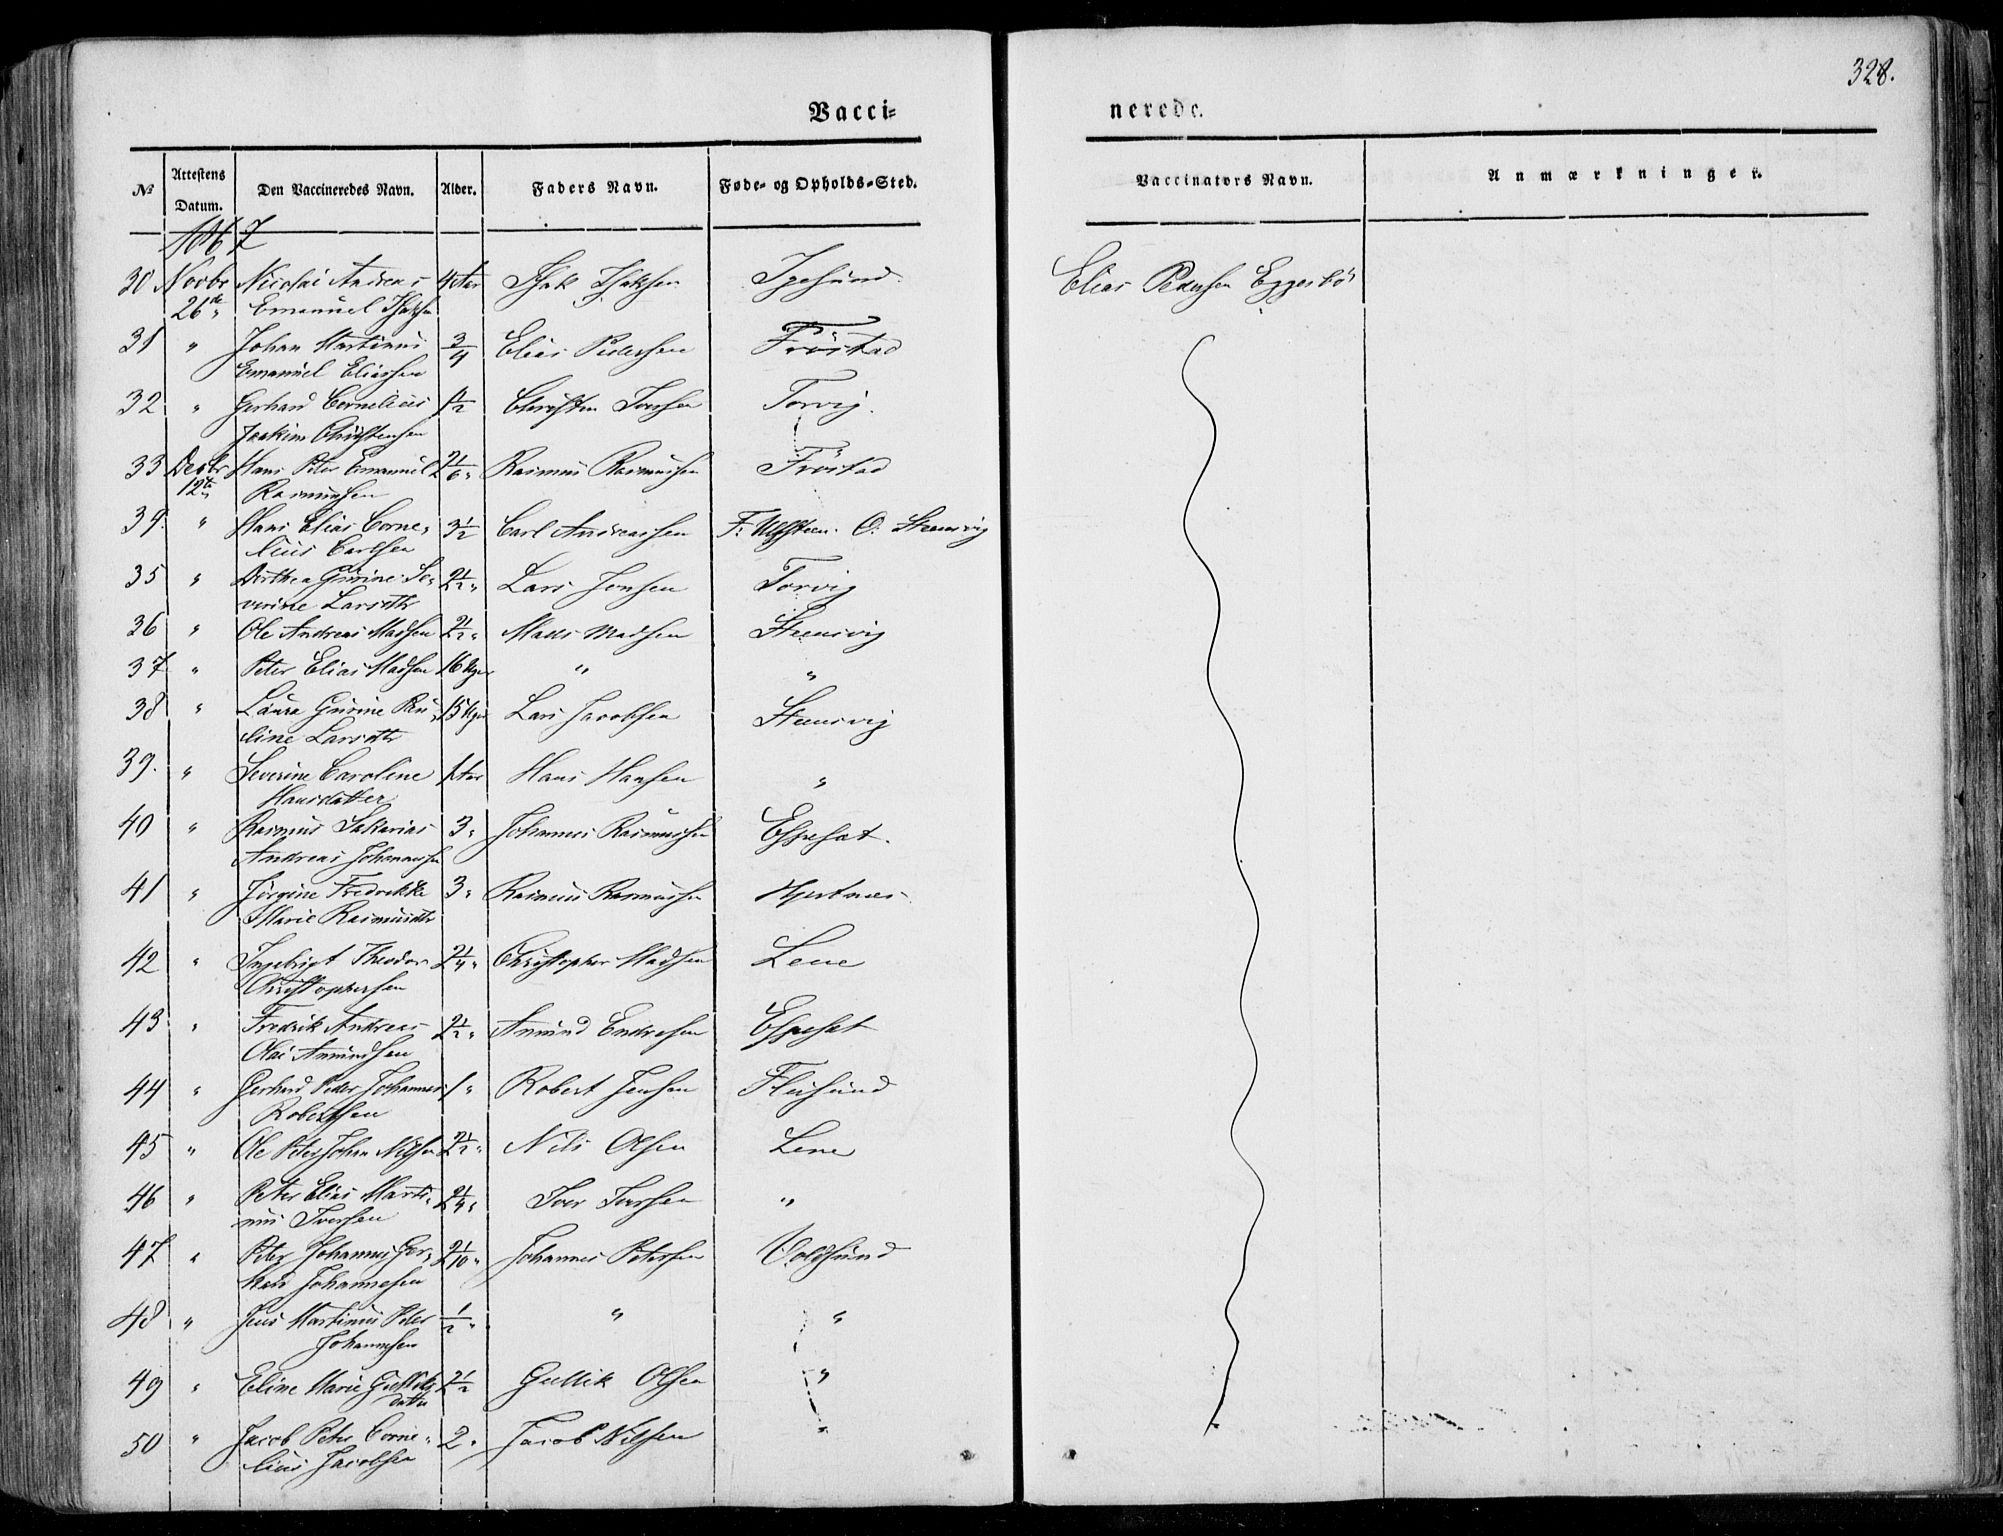 328.
Vacci=
nerede.
№
Attestens Datum.
Den Vaccineredes Navn.
Alder.
Faders Navn.
Føde- og Opholds-Sted.
Vaccinators Navn.
Anmærkninger.
1867
30 Novbr Nicolai Andreas 4 Aar Isak Isaksen Igesund Elias Pedersen Eggesbö
26de Emanuel Isaksen
31 " Johan Martinus 3/4 Elias Pedersen Fröstad
Emanuel Eliassen
32 " Gerhard Cornelius 1/2 Christen Iversen Torvig.
Joakim Christensen
33 Decbr Hans Peter Emanuel 2 1/6 " Rasmus Rasmussen Fröstad
12te Rasmussen
34. " Hans Elias Corne- 3 1/2 Carl Andreassen F. Ulfsteen. O. Stensvig
lius Carlsen
35 " Dorthea Gurine Se- 2 1/2 " Lars Jonsen Torvig
verine Larsdtr
36 " Ole Andreas Madsen 2 1/2 " Mads Madsen Stensvig
37 " Peter Elias Madsen 16 Uger " "
38 " Laura Gurine Pau- 15 Uger Lars Jacobsen Stensvig
line Larsdtr
39. " Severine Caroline 1 Aar Hans Hansen "
Hansdatter
40 " Rasmus Sakarias 3 " Johannes Rasmussen Espesæt.
Andreas Johannessen
41 " Jörgine Fredrikke 3 " Rasmus Rasmussen Hjertnæs
Marie Rasmusdtr
42 " Ingebrigt Theodor 2 1/4 " Christopher Madsen Lene
Christophersen
43 " Fredrik Andreas 2 1/2 " Amund Endresen Espesæt
Olai Amundsen
44 " Gerhard Peder Johannes 1 " Robert Jensen Flusund
Robertsen
45 " Ole Peter Johan Nilsen 2 1/2 " Nils Olsen Lene
46 " Peter Elias Marti- 2 1/4 " Iver Iversen "
nus Iversen
47 " Peter Johannes Ger- 2 1/10 " Johannes Petersen Voldsund
hard Johannesen
48 " Jens Martinus Peter 1/2 " " "
Johannesen
49 " Eline Marie Gulliks 2 1/2 Gullik Olsen "
datter
50 " Jacob Peter Corne- 2 " Jacob Nilsen "
lius Jacobsen